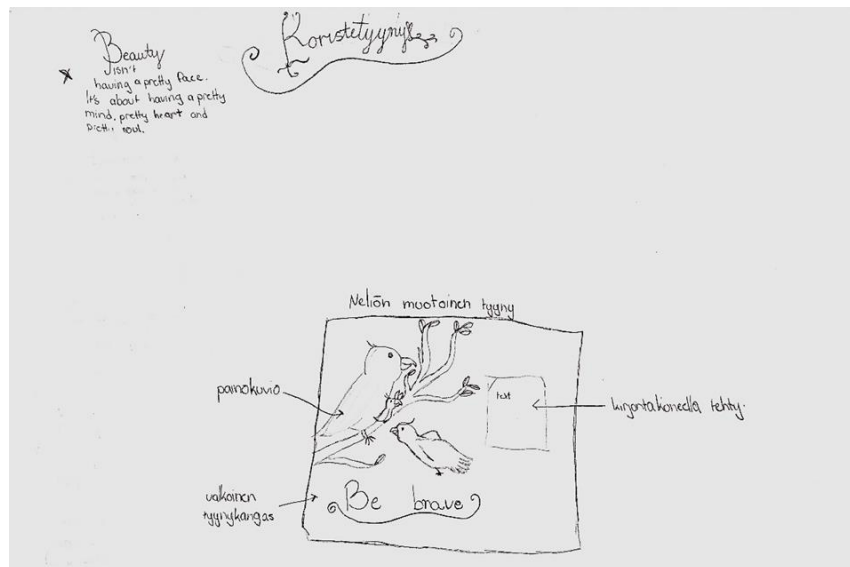 Koristetyynys
Beauty
isn't
having a pretty face.
It's about having a pretty
mind, pretty heart and
pretty soul.
Neliön muotoinen tyyny
painokuvio
text
kirjontakoneella tehty.
valkoinen
tyynykangas
Be brave